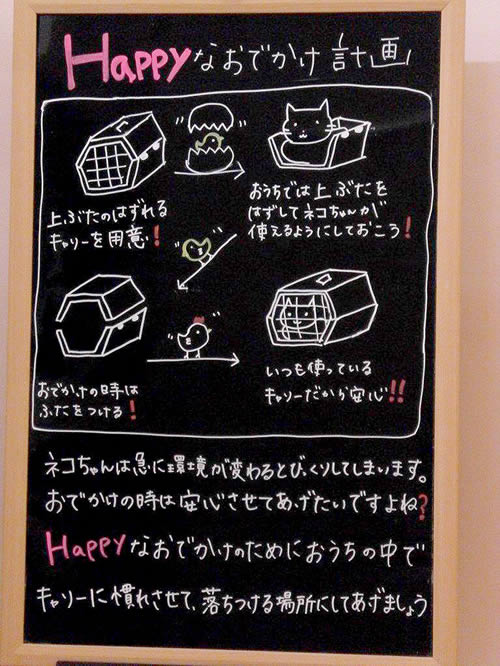 Happyなおでかけ計画
上ぶたのはずれる
キャリーを用意!
おうちでは上ぶたを
はずしてネコちゃんが
使えるようにしておこう!
おでかけの時は
ふたをつける!
いつも使っている
キャリーだから安心!!
ネコちゃんは急に環境が変わるとびっくりしてしまいます。
おでかけの時は安心させてあげたいですよね?
Happyなおでかけのためにおうちの中で
キャリーに慣れさせて、落ちつける場所にしてあげましょう